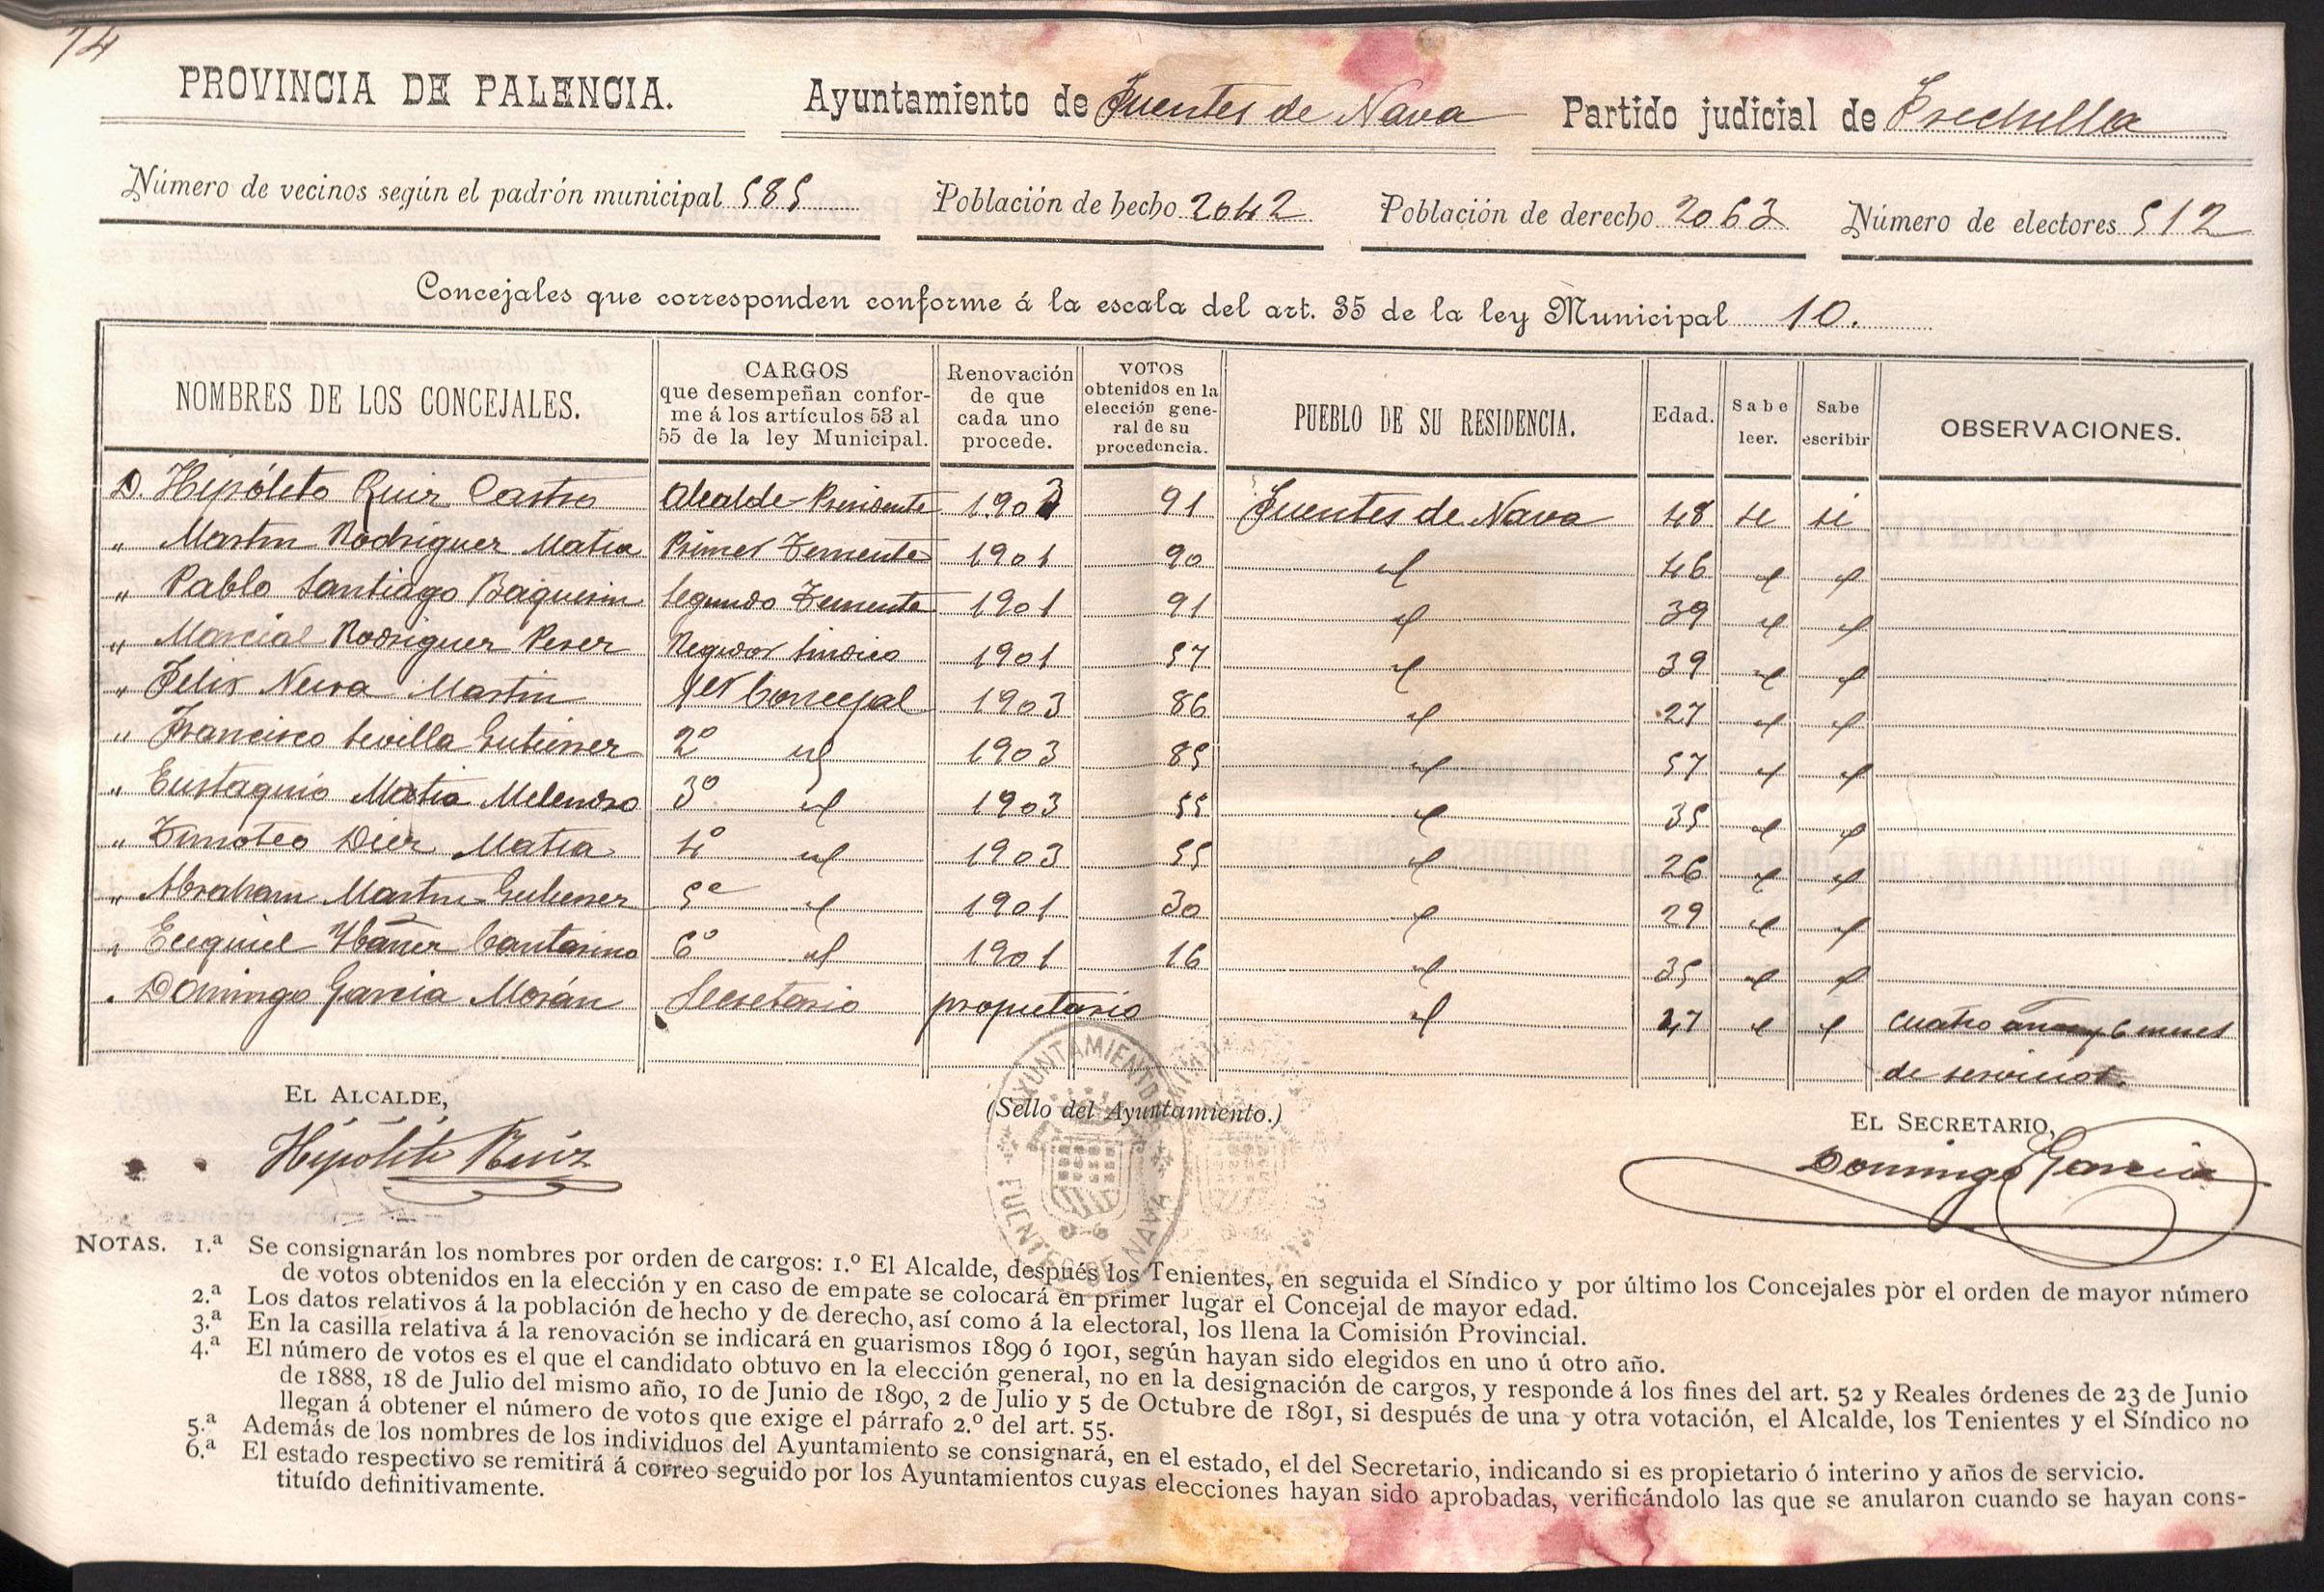 74
PROVINCIA DE PALENCIA. Ayuntamiento de Fuentes de Nava Partido judicial de Frechilla
Número de vecinos según el padrón municipal 585 Población de hecho 2042 Población de derecho 2063 Número de electores 512
Concejales que corresponden conforme á la escala del art. 35 de la ley Municipal 10.
NOMBRES DE LOS CONCEJALES. CARGOS que desempeñan conforme á los artículos 53 al 55 de la ley Municipal. Renovación de que cada uno procede. VOTOS obtenidos en la elección general de su procedencia. PUEBLO DE SU RESIDENCIA. Edad. Sabe leer. Sabe escribir OBSERVACIONES.
D. Hipólito Ruiz Castro Alcalde Presidente 1903 91 Fuentes de Nava 48 si si
" Martin Rodriguez Matia Primer Teniente 1901 90 id 46 id id
" Pablo Santiago Baquerin Segundo Teniente 1901 91 id 39 id id
" Marcial Rodriguez Perez Regidor Sindico 1901 57 id 39 id id
" Felix Neira Martin 1er Concejal 1903 86 id 27 id id
" Francisco Sevilla Gutierrez 2º id 1903 85 id 57 id id
" Eustaquio Matia Melendro 3º id 1903 55 id 35 id id
" Timoteo Diez Matia 4º id 1903 55 id 26 id id
" Abraham Martin Gutierrez 5º id 1901 30 id 29 id id
" Ecequiel Ibañez Cantarino 6º id 1901 16 id 35 id id
" Domingo Garcia Morán Secretario propietario id 27 id id Cuatro años y 6 meses
de servicios.
EL ALCALDE,
Hipólito Ruiz
(Sello del Ayuntamiento.)
AYUNTAMIENTO DE FUENTES DE NAVA
EL SECRETARIO,
Domingo Garcia
NOTAS. 1.ª Se consignarán los nombres por orden de cargos: 1.º El Alcalde, después los Tenientes, en seguida el Síndico y por último los Concejales por el orden de mayor número
de votos obtenidos en la elección y en caso de empate se colocará en primer lugar el Concejal de mayor edad.
2.ª Los datos relativos á la población de hecho y de derecho, así como á la electoral, los llena la Comisión Provincial.
3.ª En la casilla relativa á la renovación se indicará en guarismos 1899 ó 1901, según hayan sido elegidos en uno ú otro año.
4.ª El número de votos es el que el candidato obtuvo en la elección general, no en la designación de cargos, y responde á los fines del art. 52 y Reales órdenes de 23 de Junio
de 1888, 18 de Julio del mismo año, 10 de Junio de 1890, 2 de Julio y 5 de Octubre de 1891, si después de una y otra votación, el Alcalde, los Tenientes y el Síndico no
llegan á obtener el número de votos que exige el párrafo 2.º del art. 55.
5.ª Además de los nombres de los individuos del Ayuntamiento se consignará, en el estado, el del Secretario, indicando si es propietario ó interino y años de servicio.
6.ª El estado respectivo se remitirá á correo seguido por los Ayuntamientos cuyas elecciones hayan sido aprobadas, verificándolo las que se anularon cuando se hayan cons-
tituído definitivamente.